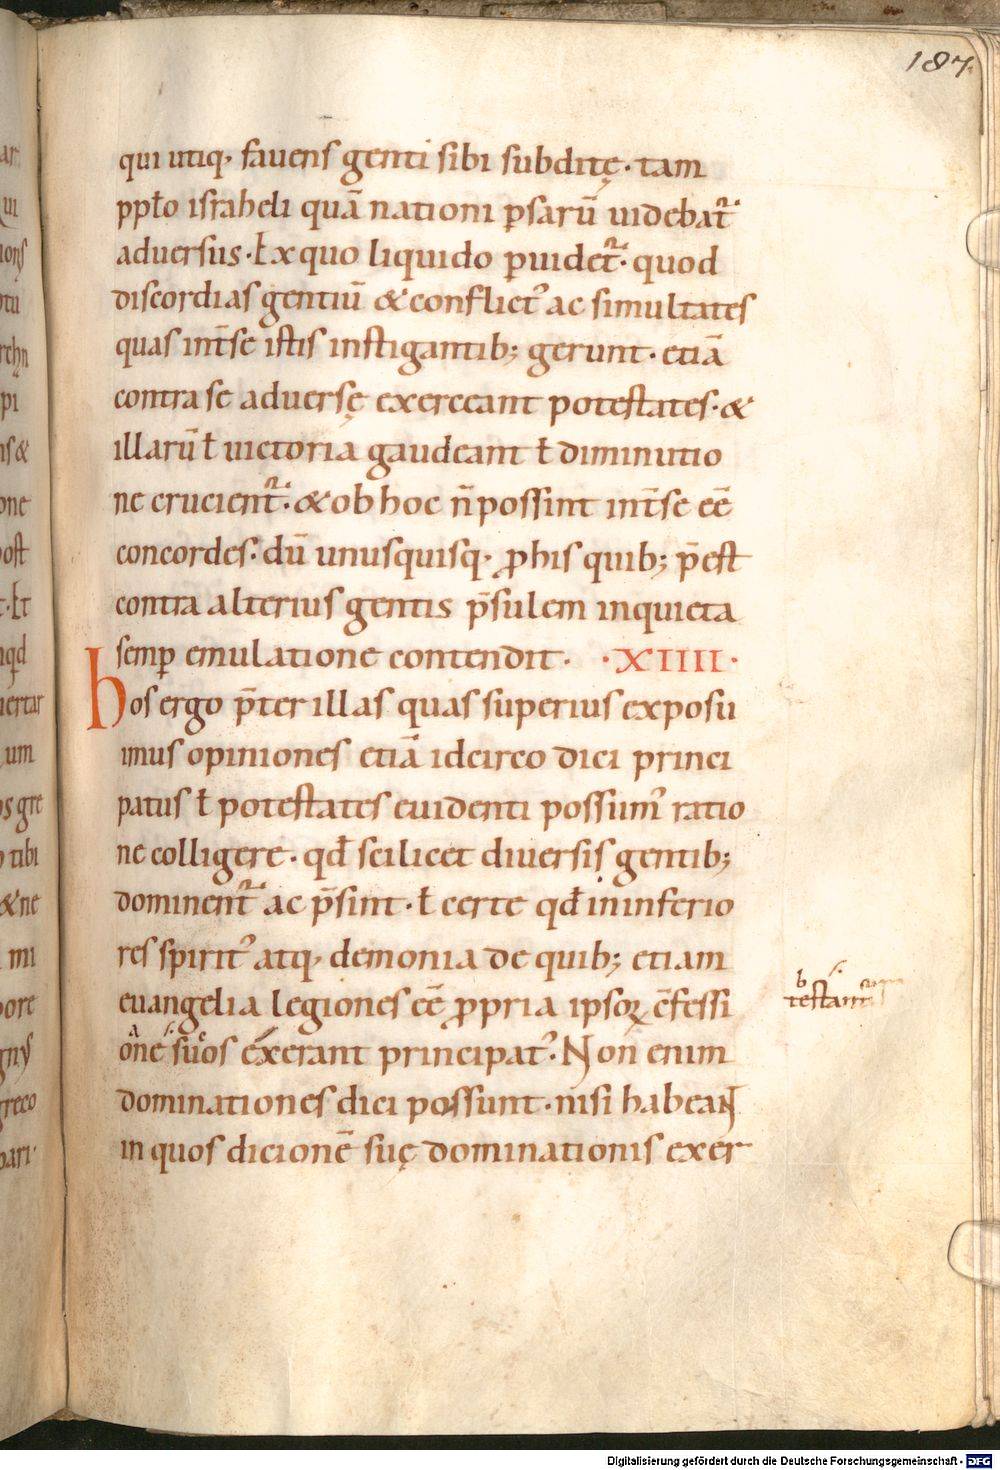 187.
qui utiq, favens genti sibi subditę · tam
ppło israheli quā nationi ꝑsarū uidebat᷑
adversus · Ex quo liquido ꝑuidet᷑ · quod
discordias gentiū & conflict᾿ ac simultates
quas int̄se istis instigantib; gerunt · etiā
contra se aduersę exerceant potestates · &
illarū ł uictoria gaudeant ł diminutio
ne crucient᷑ · & ob hoc n̄ possint int̄se eē
concordes · dū unusquisq, ꝓ his quib; p̄est
contra alterius gentis p̄sulem inquieta
semꝑ emulatione contendit · · XIIII ·
hos ergo p̄ter illas quas superius exposu
imus opiniones etiā idcirco dici princi
patus ł potestates euidenti possum᾿ ratio
ne colligere · qđ scilicet diuersis gentib;
dominent᷑ ac p̄sint · ł certe qđ in inferio
res spirit᾿ atq, demonia de quib; etiam
euangelia legiones eē ꝓpria ipsoꝝ c̄fessi
one suos exerant principat᾿ · Non enim
dominationes dici possunt · nisi habeant
in quos dicionē suę dominationis exer
Digitalisierung gefördert durch die Deutsche Forschungsgemeinschaft - DFG